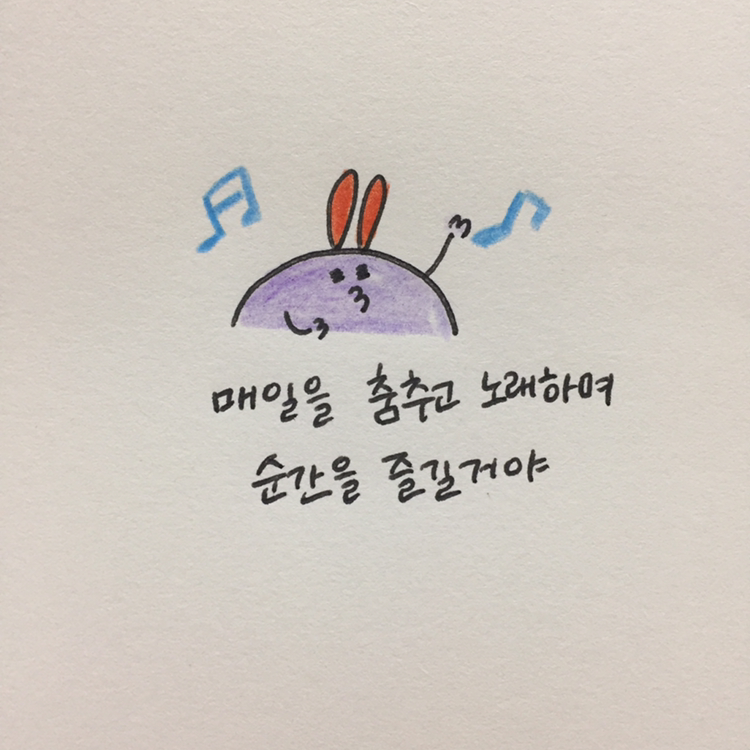 매일을 춤추고 노래하며
순간을 즐길거야